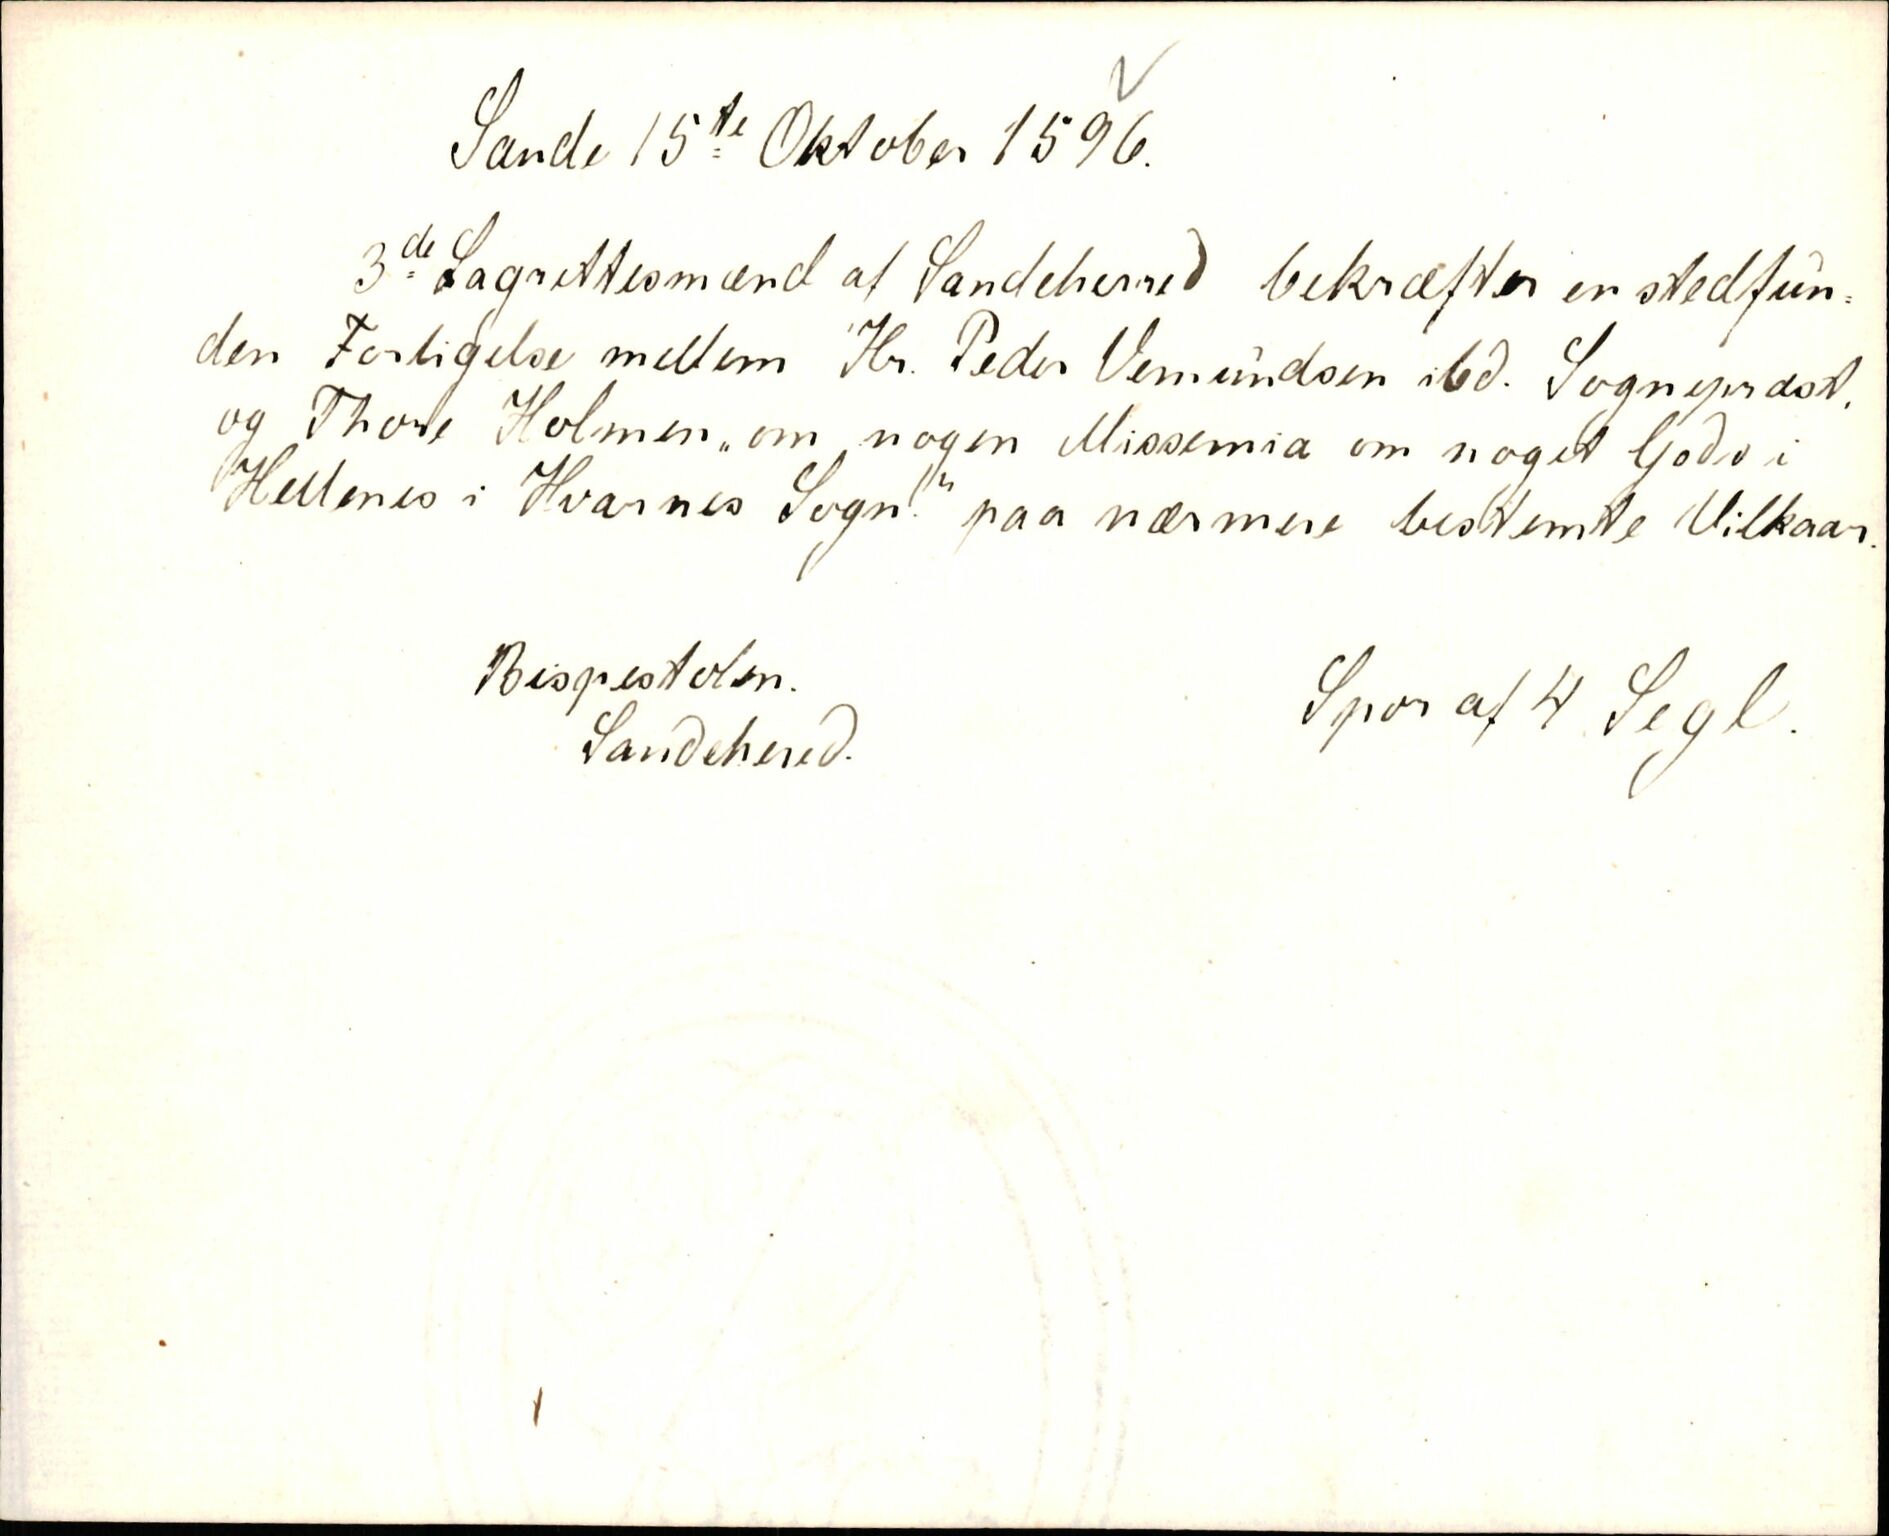 Sande 15te Oktober 1596.
3de Lagrettesmænd af Sandeherred bekræfter en stedfun=
den Forligelse mellem Hr. Peder Vemundsen ibd. Sognepræst,
og Thore Holmen „om nogen Missemia om noget Gods i
Hellenes i Hvarnes Sogn." paa nærmere bestemte Vilkaar.
Bispestolen.
Spor af 4 Segl.
Sandehered.